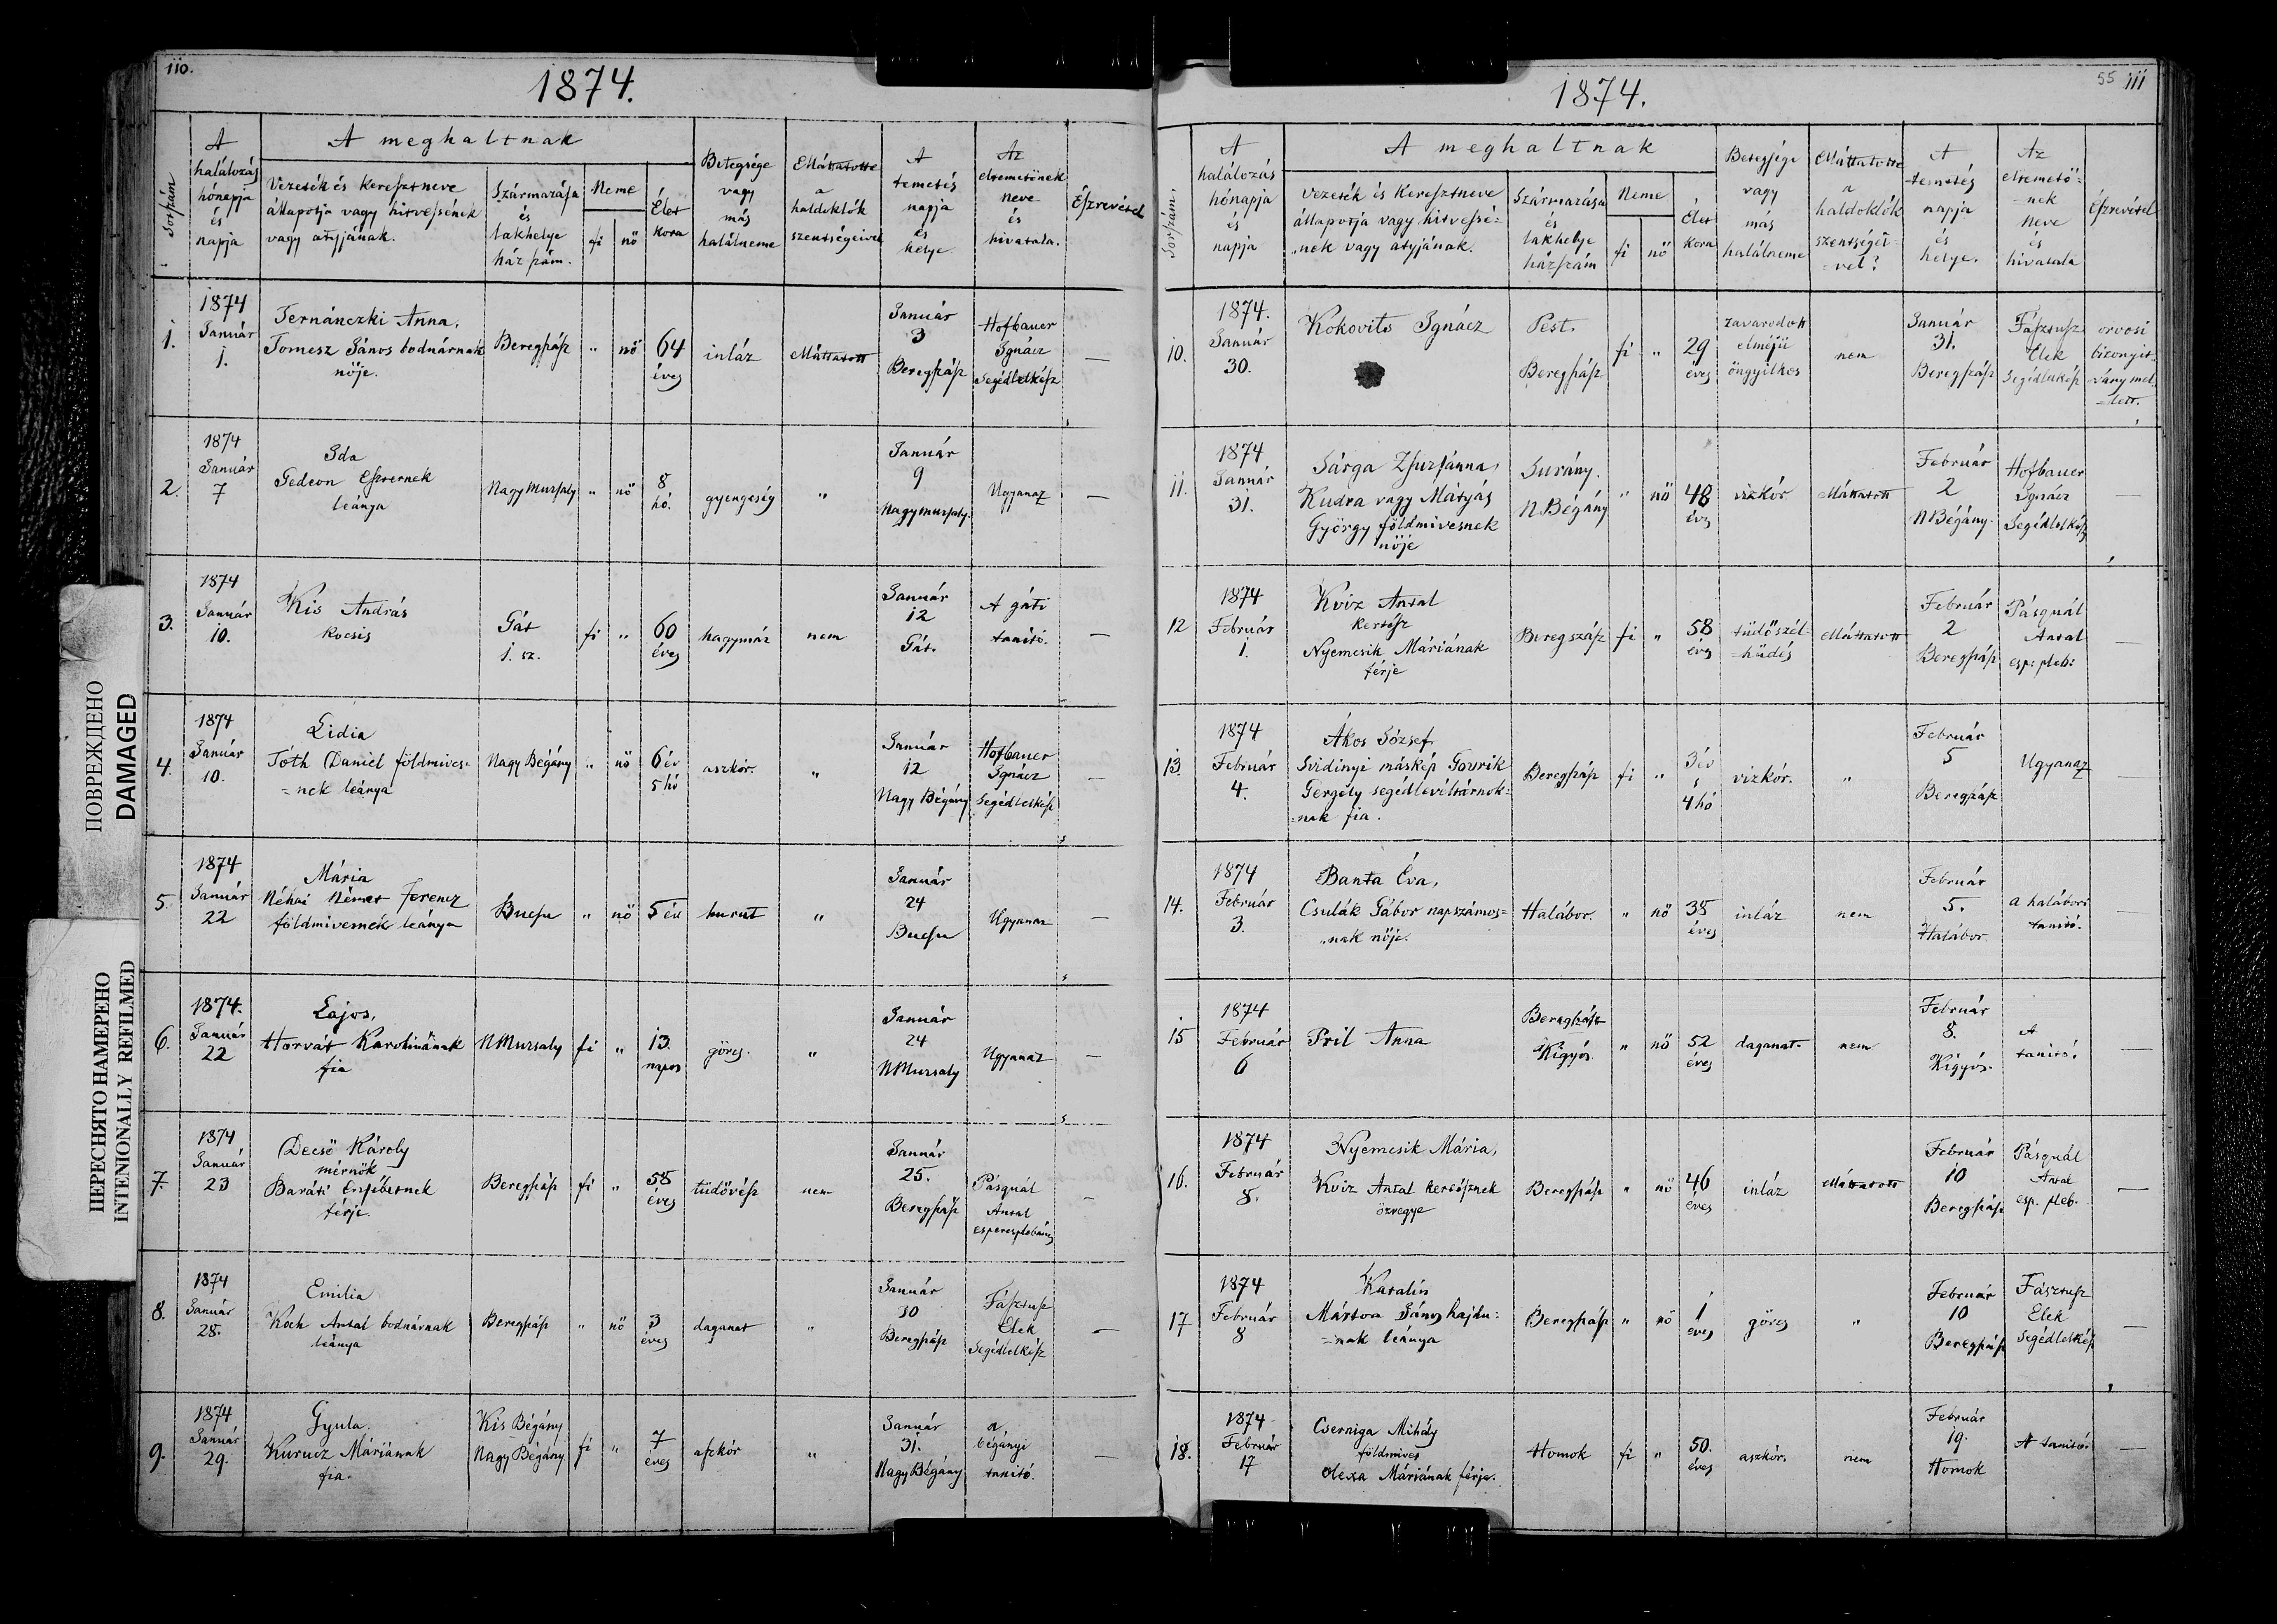 110.
1874.
Sorszám
A halálozás hónapja és napja
A meghaltnak
Vezeték és keresztneve állapotja vagy hitvesének vagy atyjának.
Származása és lakhelye ház szám.
Neme
fi
nő
Élet kora
Betegsége vagy más halálneme
Elláttatott-e a haldoklók szentségeivel
A temetés napja és helye
Az eltemetőnek neve és hivatala.
Észrevétel
1.
1874
Január
1.
Anna,
Tomesz János bodnárnak
nője.
Beregszász
"
nő
64
éves
inláz
Elláttatott
Január
3
Beregszász
Hofbauer
Ignácz
Segédlelkész
—
2.
1874
Január
7
Ida
Gedeon Eszternek
leánya
Nagy Muzsaly
"
nő
8
hó.
gyengeség
"
Január
9
Nagymuzsaly.
Ugyanaz
—
3.
1874
Január
10.
Kis András
kocsis
Gát
1. sz.
fi
"
60
éves
hagymáz
nem
Január
12
Gát.
A gáti
tanitó.
—
4.
1874
Január
10.
Lidia
Tóth Daniel földmives=
=nek leánya
Nagy Bégány
"
nő
6 év
5 hó
aszkór.
"
Január
12
Nagy Bégány
Hofbauer
Ignácz
Segédlelkész
—
5.
1874
Január
22
Mária
Néhai Német Ferencz
földmivesnek leánya
Bucsu
"
nő
5 év
hurut
"
Január
24
Bucsu
Ugyanaz
—
6.
1874.
Január
22
Lajos,
Horvát Karolinának
fia
N Muzsaly
fi
"
13.
napos
görcs.
"
Január
24
N Muzsaly
Ugyanaz
—
7.
1874
Január
23
Decső Károly
mérnök
Baráti Erzsébetnek
férje.
Beregszász
fi
"
58
éves
tüdővész
nem
Január
25.
Beregszász
Pásquál
Antal
esperesplebános
—
8.
1874
Január
28.
Emilia
Koch Antal bodnárnak
leánya
Beregszász
"
nő
3
éves
daganat
"
Január
30
Beregszász
Fásztusz
Elek
Segédlelkész
—
9.
1874
Január
29.
Gyula
Kurucz Máriának
fia.
Kis Bégány
Nagy Bégány
fi
"
7
éves
aszkór
"
Január
31.
Nagy Bégány
a
bégányi
tanitó.
—
55 111
1874.
Sorszám.
A halálozás hónapja és napja
A meghaltnak
Vezeték és keresztneve állapotja vagy hitvesé=
"nek vagy atyjának.
Származása és lakhelye házszám
Neme
fi
nő
Élet kora
Betegsége vagy más halálneme
Elláttatott-e a haldoklók szentségei=
=vel?
A temetés napja és helye.
Az eltemető=
=nek neve és hivatala
Észrevétel
10.
1874.
Január
30.
Kokovits Ignácz
Pest.
Beregszász.
fi
"
29
éves
zavarodott
elméjü
öngyilkos
nem
Január
31.
Beregszász
Fásztusz
Elek
Segédlelkész
orvosi
bizonyit=
vány mel=
=lett.
11.
1874
Január
31.
Sárga Zsuzsánna,
Kudra vagy Mátyás
György földmivesnek
nője
Surány.
N Bégány
"
nő
48
éves
vizkór
Elláttatott
Február
2
N Bégány.
Hofbauer
Ignácz
Segédlelkész
—
12
1874
Február
1.
Kviz Antal
kertész
Nyemcsik Máriának
férje
Beregszász
fi
"
58
éves
tüdőszél=
=hüdés
Elláttatott
Február
2
Beregszász
Pásquál
Antal
esp: pleb:
—
13.
1874
Február
4.
Ákos József
Svidinyi máskép Gavrik
Gergely segédlevéltárnok=
=nak fia.
Beregszász
fi
"
3 év
s
4 hó
vizkór.
"
Február
5
Beregszász
Ugyanaz
—
14.
1874
Február
3.
Banta Éva,
Csulák Gábor napszámos=
"nak nője.
Halábor.
"
nő
35
éves
inláz
nem
Február
5.
Halábor
a halábori
tanitó.
—
15
1874
Február
6
Pril Anna
Beregszász
Kigyós.
"
nő
52
éves
daganat.
nem
Február
8.
Kigyós.
A
tanitó.
—
16.
1874
Február
8.
Nyemcsik Mária,
Kviz Antal kertésznek
özvegye
Beregszász
"
nő
46
éves
inláz
Elláttatott
Február
10
Beregszász
Pásquál
Antal
esp. pleb.
—
17
1874
Február
8
Katalin
Mártva János hajdu=
=nak leánya
Beregszász
"
nő
1
éves
görcs
"
Február
10
Beregszász
Fásztusz
Elek
Segédlelkész
—
18.
1874
Február
17
Cserniga Mihály
földmives
Olexa Máriának férje.
Homok
fi
"
50.
éves
aszkór.
nem
Február
19.
Homok
A tanitó.
—
ПОВРЕЖДЕНО
DAMAGED
ПЕРЕСНЯТО НАМЕРЕНО
INTENIONALLY REFILMED